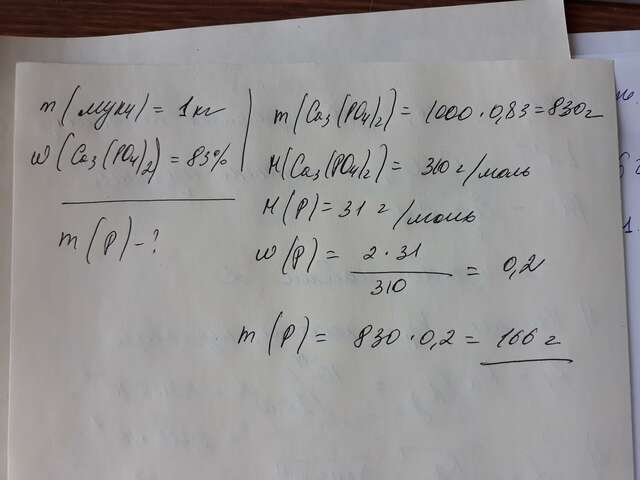 m(муки) = 1кг
w(Ca₃(PO₄)₂) = 83%
m(P) - ?
m(Ca₃(PO₄)₂) = 1000 · 0,83 = 830г
M(Ca₃(PO₄)₂) = 310 г/моль
M(P) = 31 г/моль
w(P) = 2 · 31 / 310 = 0,2
m(P) = 830 · 0,2 = 166 г